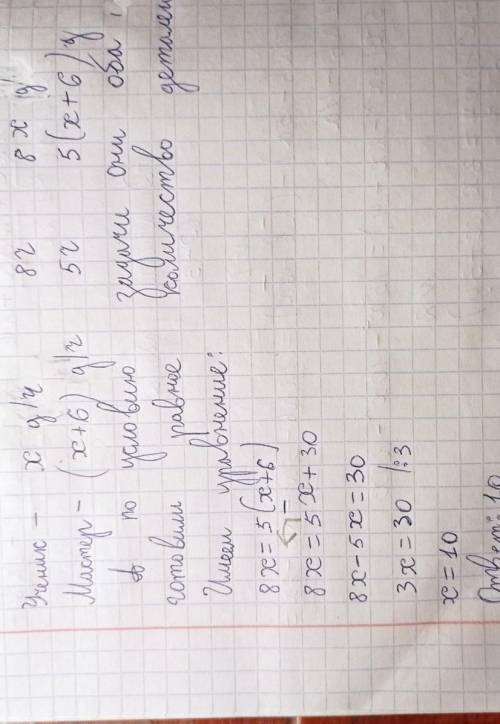 Ученик - x д/ч 8ч 8x д
Мастер - (x+6) д/ч 5ч 5(x+6) д
А по условию задачи они оба
готовили равное количество деталей
Имеем уравнение:
8x=5(x+6)
8x=5x+30
8x-5x=30
3x=30 |:3
x=10
Ответ: 10